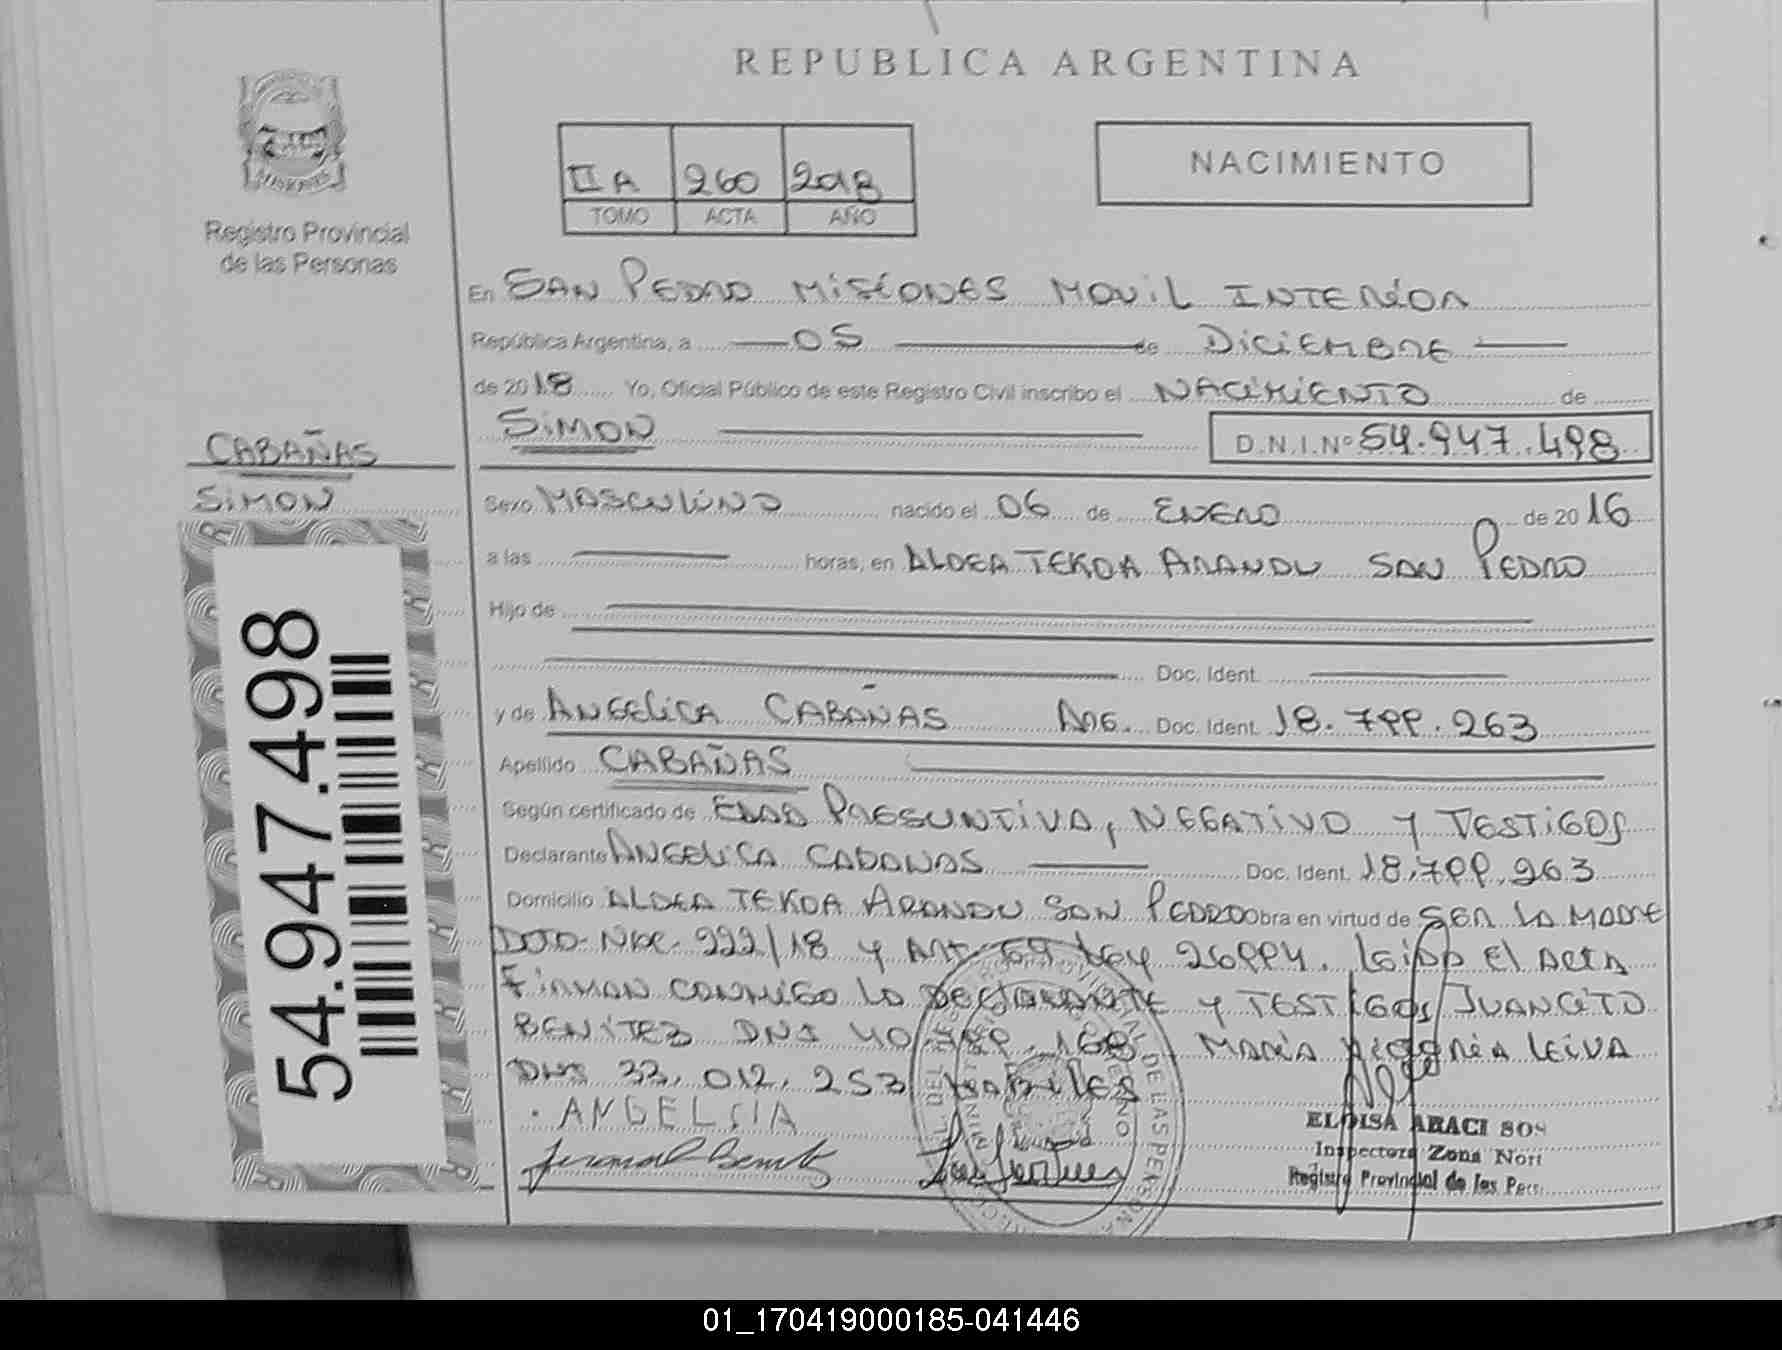 REPUBLICA ARGENTINA
Registro Provincial
de las Personas
II A 260 2018
TOMO ACTA AÑO
NACIMIENTO
En SAN PEDRO MISIONES MOVIL INTERIOR
República Argentina, a 05 de DICIEMBRE
de 2018 Yo, Oficial Público de este Registro Civil inscribo el NACIMIENTO de
SIMON D.N.I.Nº 54.947.498
CABAÑAS
SIMON
54.947.498
Sexo MASCULINO nacido el 06 de ENERO de 2016
a las horas, en ALDEA TEKOA ARANDU SAN PEDRO
Hijo de
Doc. Ident.
y de ANGELICA CABAÑAS ARG. Doc. Ident. 18.799.263
Apellido CABAÑAS
Según certificado de EDAD PRESUNTIVA, NEGATIVO Y TESTIGOS
Declarante ANGELICA CABAÑAS Doc. Ident. 18.799.263
Domicilio ALDEA TEKOA ARANDU SAN PEDRO Obra en virtud de SER LA MADRE
DCTO. Nº 222/18 Y ART. 69 LEY 26994. LEIDA EL ACTA
FIRMAN CONMIGO LA DECLARANTE Y TESTIGOS JUANCITO
BENITEZ DNI 168 MARIA LEIVA
DNI 33.012.253 HABILES
ANGELCIA
ELOISA ARACI SOS
Inspectora Zona Nort
Registro Provincial de las Pers.
01_170419000185-041446